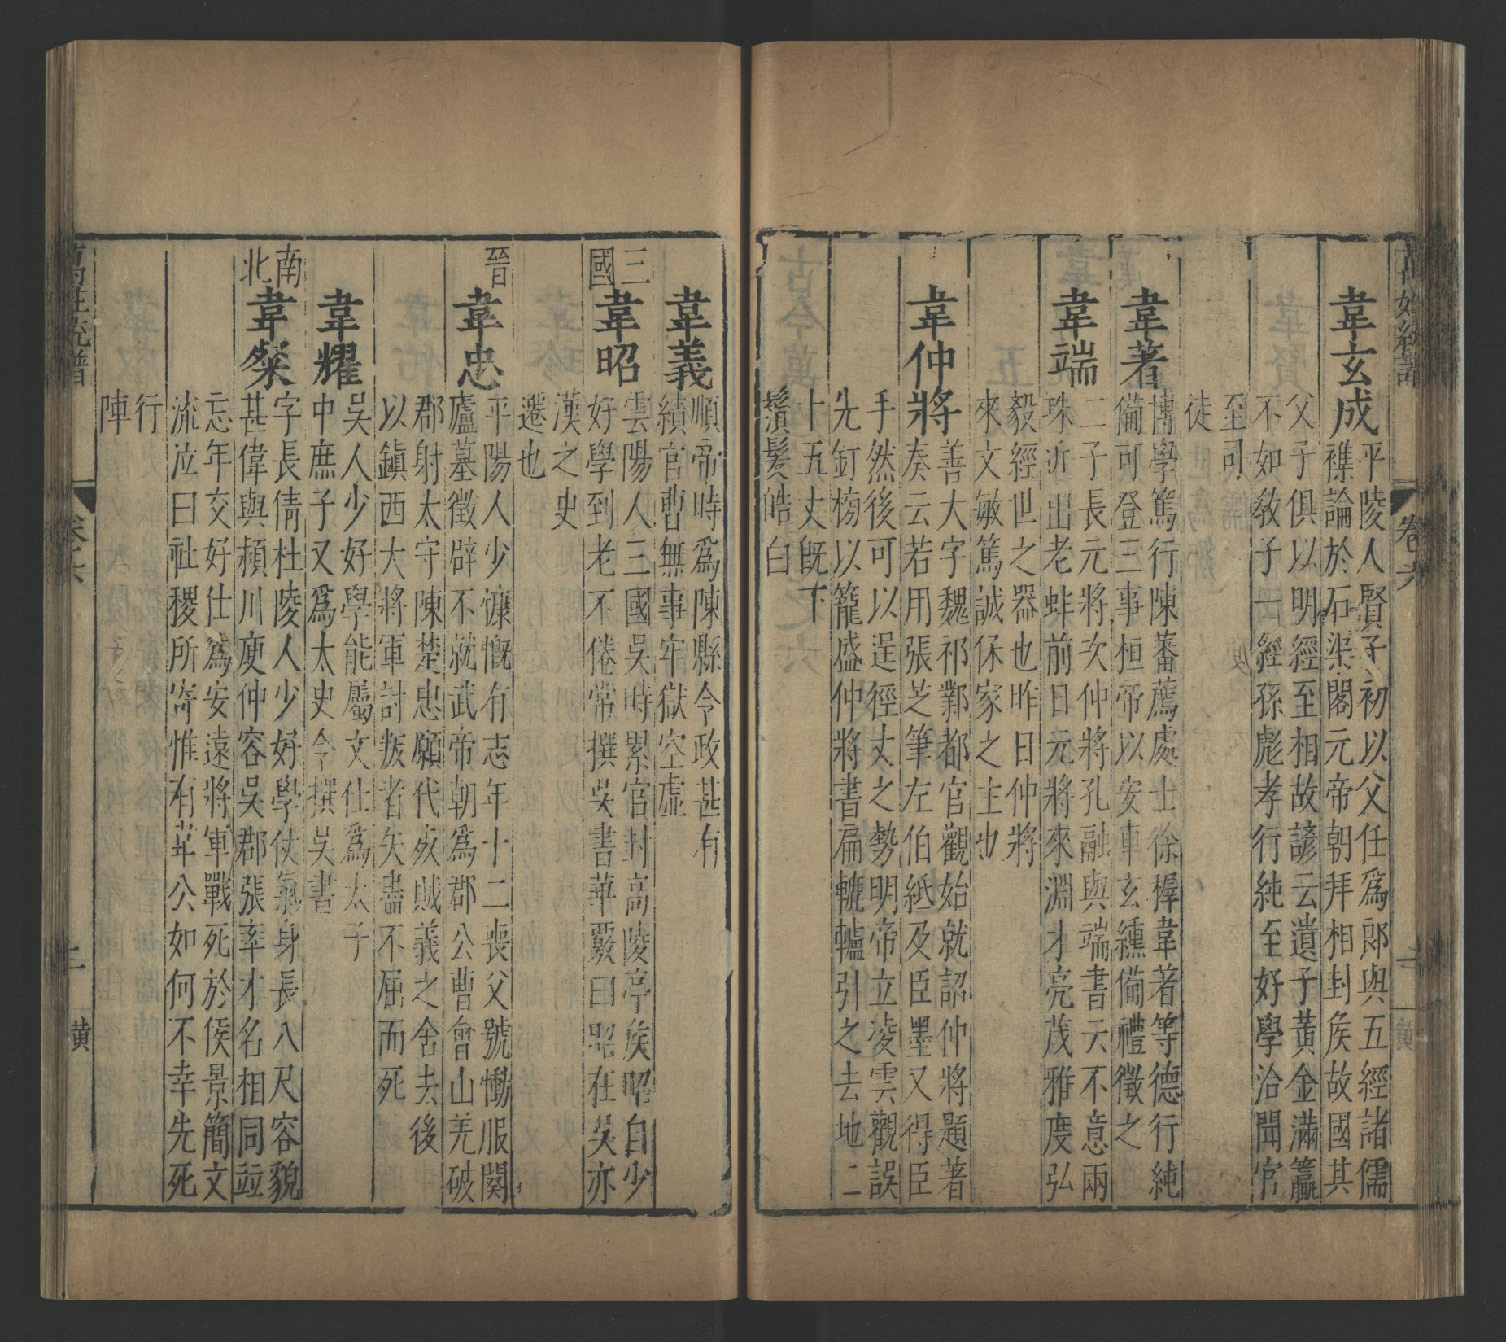 韋玄成平陵人賢子初以父任爲郞與五經諸儒
襍論於石渠閣元帝朝拜相封矦故國其
父子俱以明經至相故諺云遺子黃金滿籯
不如教子一經孫彪孝行純至好學洽聞官
至司
徒
韋著博學篤行陳蕃薦處士徐穉韋著等德行純
備可登三事桓帝以安車玄纁備禮徵之
韋端二子長元將次仲將孔融與端書云不意兩
珠近出老蚌前日元將來淵才亮茂雅度弘
毅經世之器也昨日仲將
來文敏篤誠保家之主也
韋仲將善大字魏祁鄴都官觀始就詔仲將題著
奏云若用張芝之筆左伯紙及臣墨又得臣
手然後可以逞徑丈之勢明帝立凌雲觀誤
先釘榜以籠盛仲將書扁轆轤引之去地二
十五丈旣下
鬚髮皓白
韋義順帝時爲陳縣令政甚有
績官曹無事牢獄空虛
三國 韋昭雲陽人三國吳時累官封高陵亭矦昭自少
好學到老不倦常撰吳書華覈曰昭在吳亦
漢之史
遷也
晉 韋忠平陽人少慷慨有志年十二喪父號慟服闋
廬墓徵辟不就武帝朝爲郡公曹會山羌破
郡射太守陳楚忠願代歿賊義之舍去後
以鎮西大將軍討叛者矢盡不屈而死
韋耀吳人少好學能屬文仕爲太子
中庶子又爲太史令撰吳書
南北 韋粲字長倩杜陵人少好學仗氣身長八尺容貌
甚偉與頴川庾仲容吳郡張率才名相同竝
忘年交好仕爲安遠將軍戰死於侯景簡文
流泣曰社稷所寄惟有韋公如何不幸先死
行
陣
卷六
二